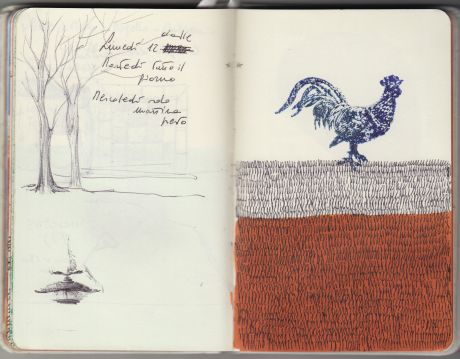 dalle
Lunedì 12
Martedì tutto il
giorno
Mercoledì solo
mattina
però